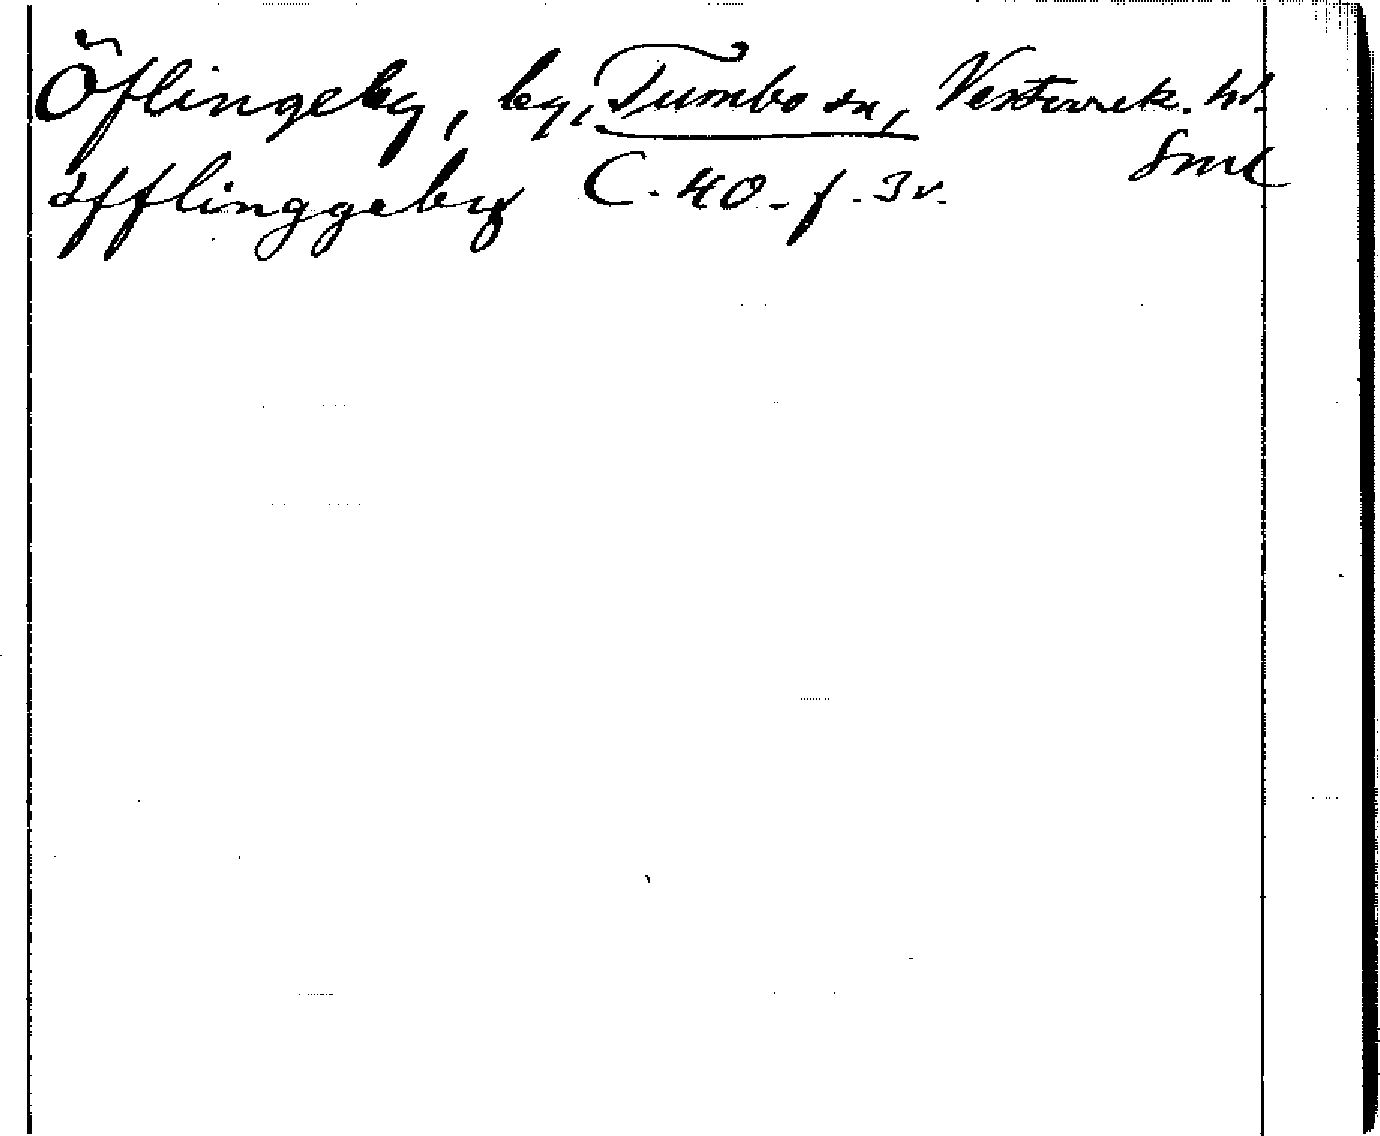 Öflingeby, by, Tumbo sn, Vesterrek. hd.
Sml
öfflinggeby C. 40. f. 3 v.